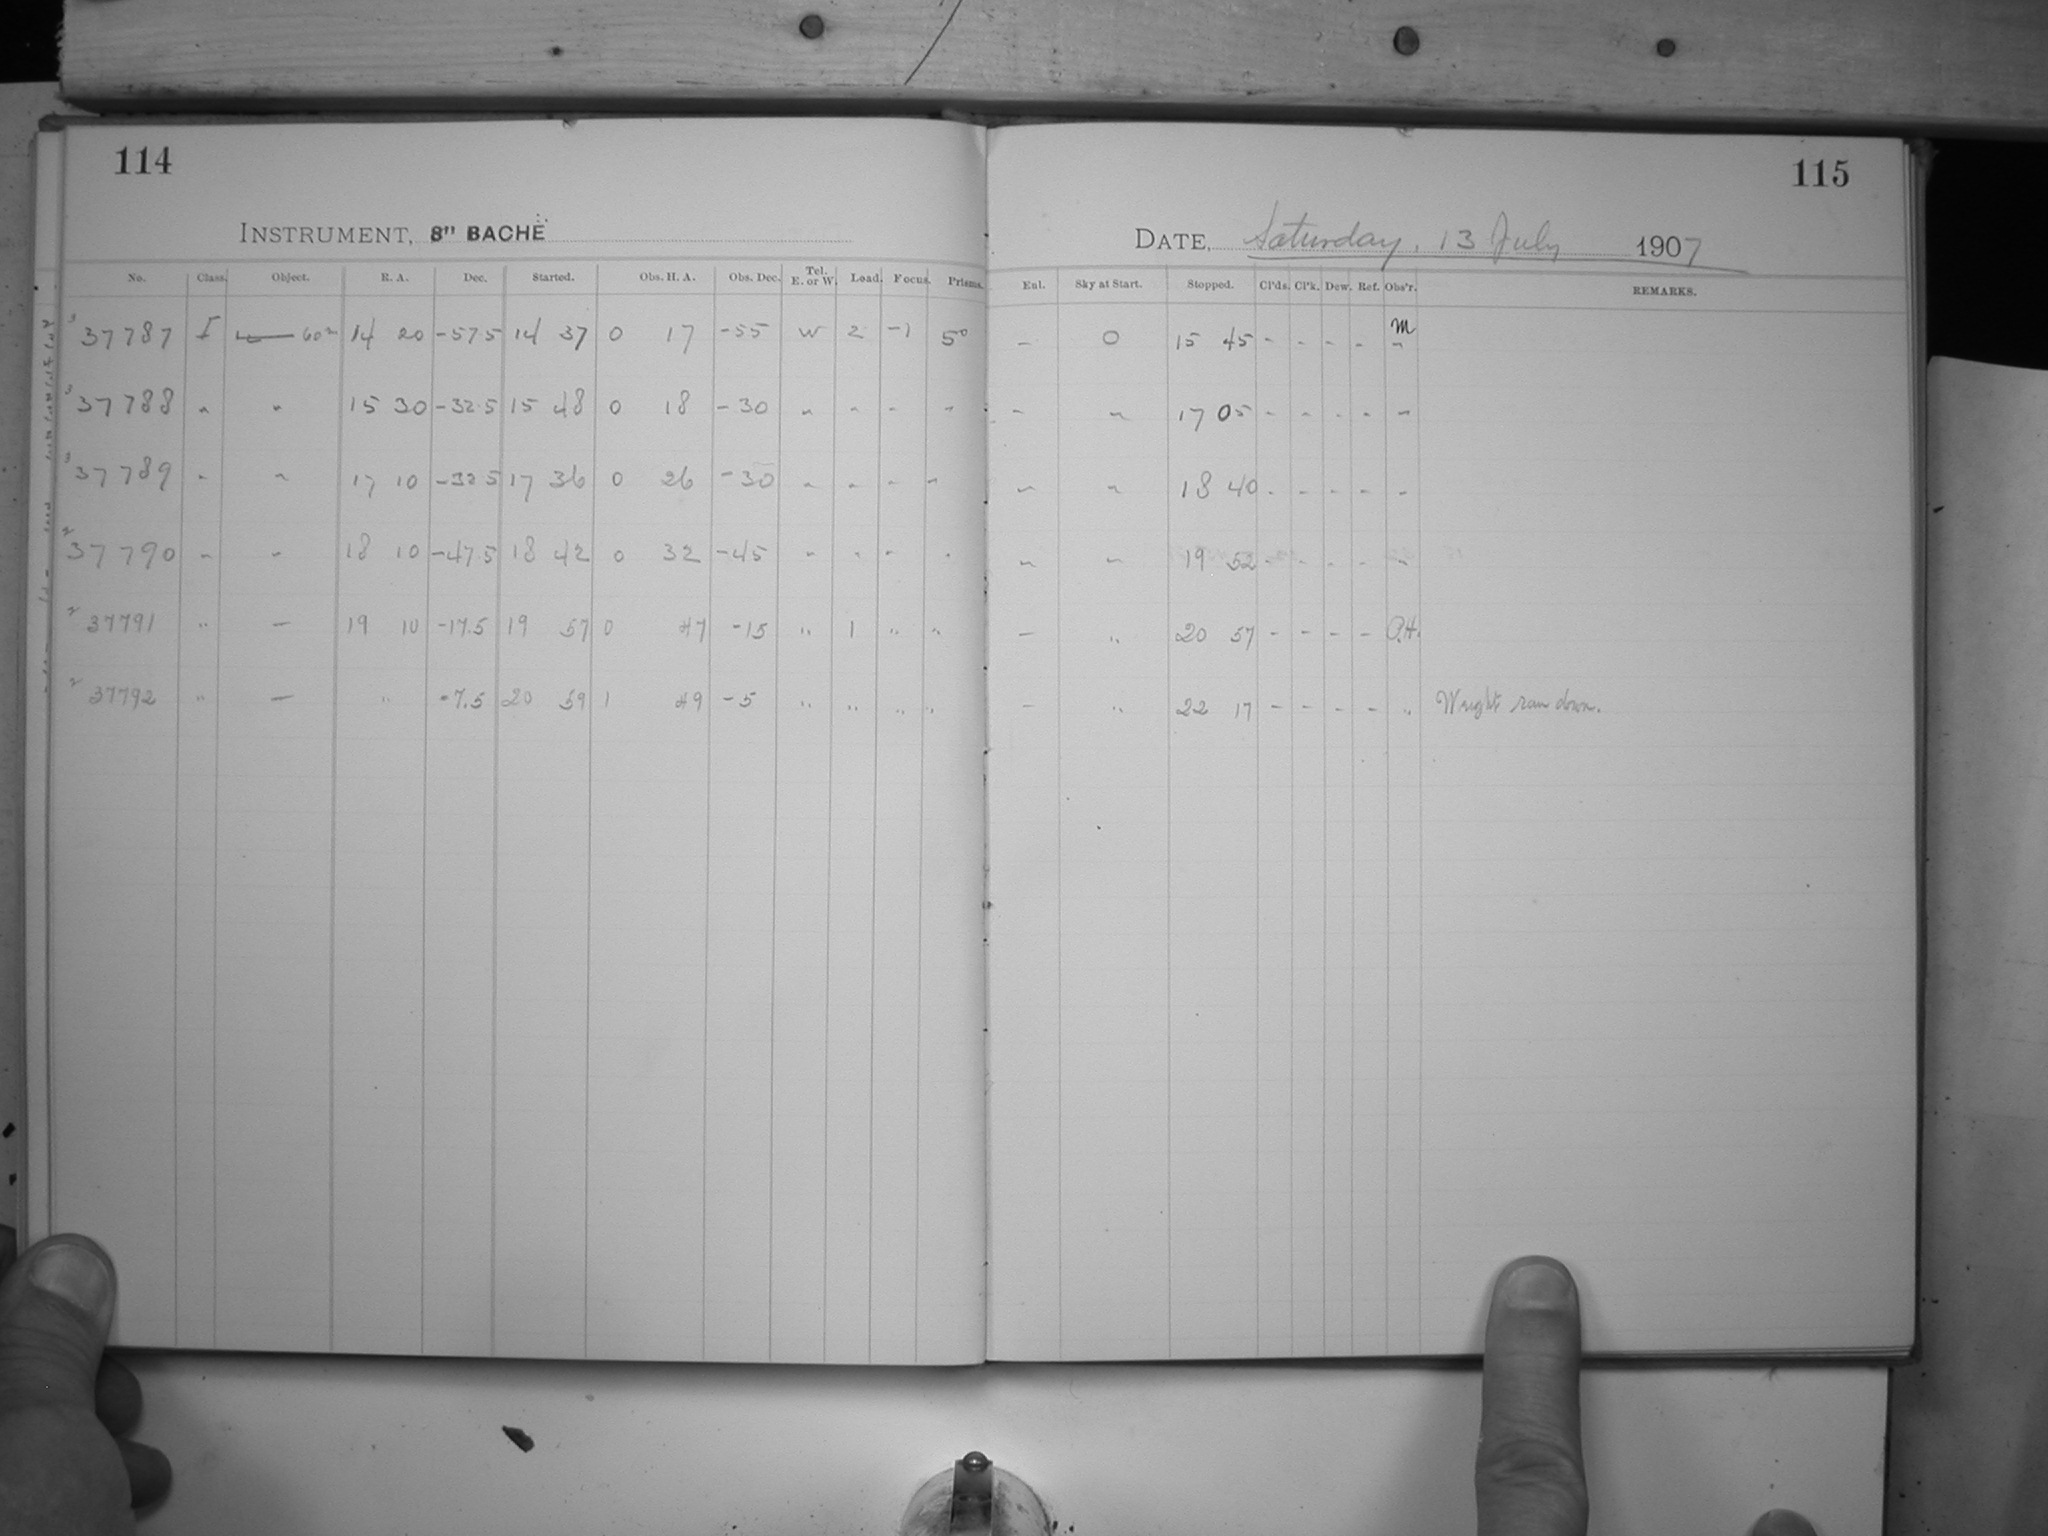 114
115
INSTRUMENT, 8" BACHE
DATE, Saturday, 13 July 1907
No. Class. Object. R. A. Dec. Started. Obs. H. A. Obs. Dec. Tel. E. or W. Lead. Focus. Prisms. Enl. Sky at Start. Stopped. Cl'ds. Cl'k. Dew. Ref. Obs'r. REMARKS.
3 37787 I — 60m 14 20 -57.5 14 37 0 17 -55 W 2 -1 5° - 0 15 45 - - - - M
3 37788 " " 15 30 -32.5 15 48 0 18 -30 " " " " " " 17 05 - - - - "
3 37789 " " 17 10 -32.5 17 36 0 26 -30 " " " " " " 18 40 - - - - "
2 37790 " " 18 10 -47.5 18 42 0 32 -45 " " " " " " 19 52 - - - - "
2 37791 " — 19 10 -17.5 19 57 0 47 -15 " 1 " " — " 20 57 - - - - O.H.
2 37792 " — " -7.5 20 59 1 49 -5 " " " " — " 22 17 - - - - " Weight ran down.